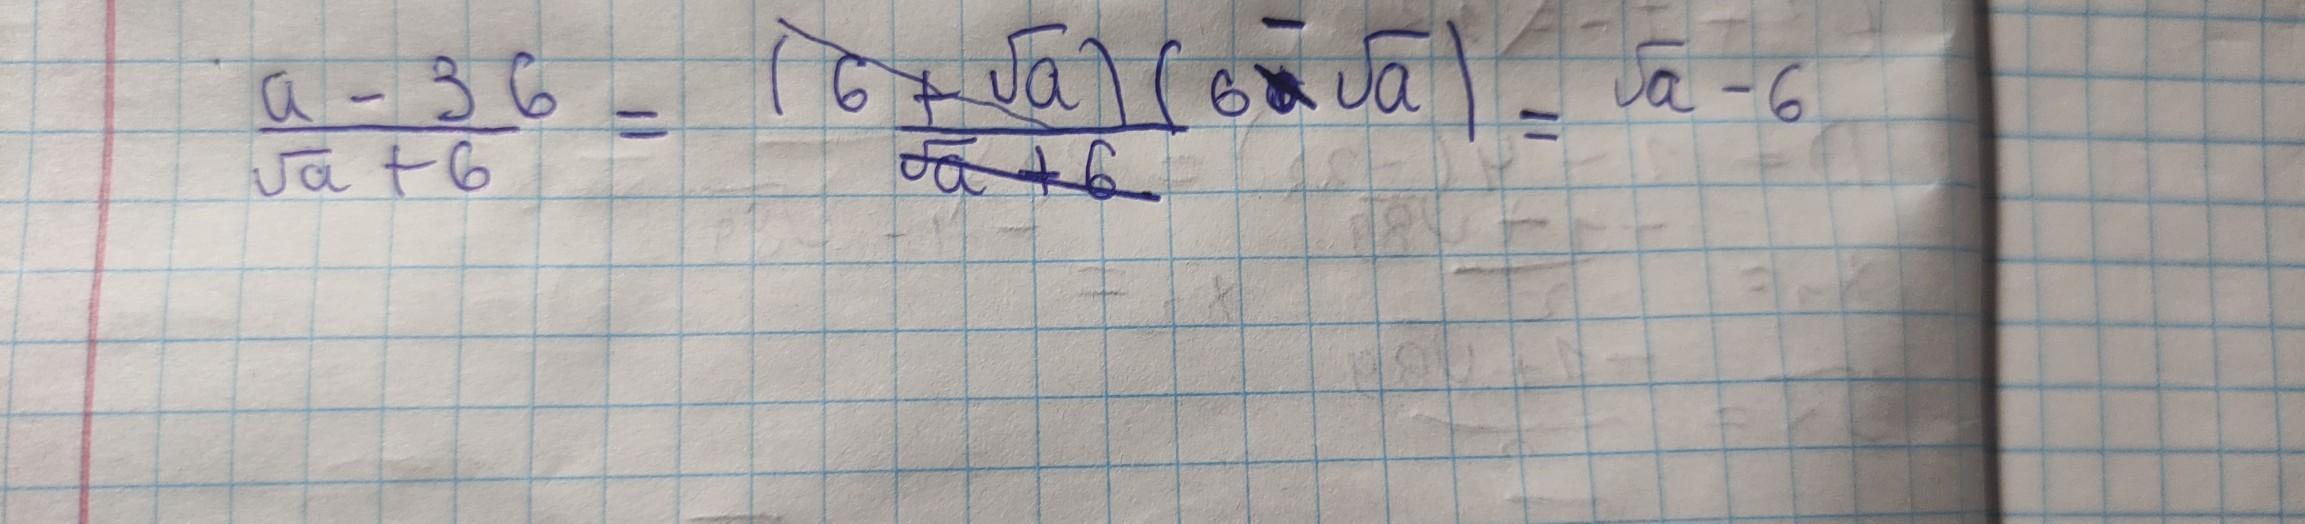 a - 36 / √a + 6 = (6 + √a)(6 - √a) / √a + 6 = √a - 6